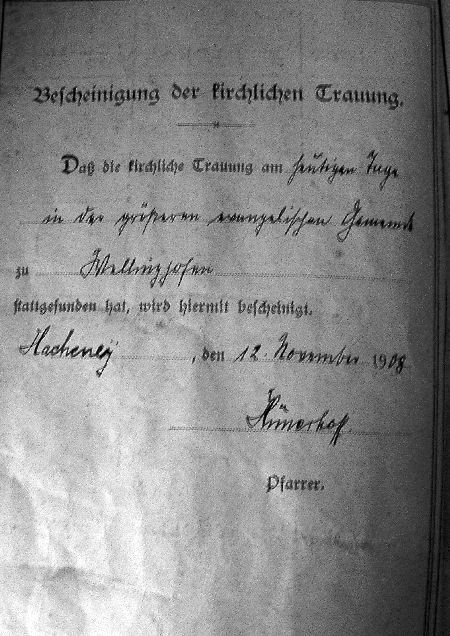 Bescheinigung der kirchlichen Trauung.
Daß die kirchliche Trauung am heutigen Tage
in der größeren evangelischen Gemeinde
zu Wellinghofen
stattgefunden hat, wird hiermit bescheinigt.
Hacheney, den 12. November 1908
Pfarrer.